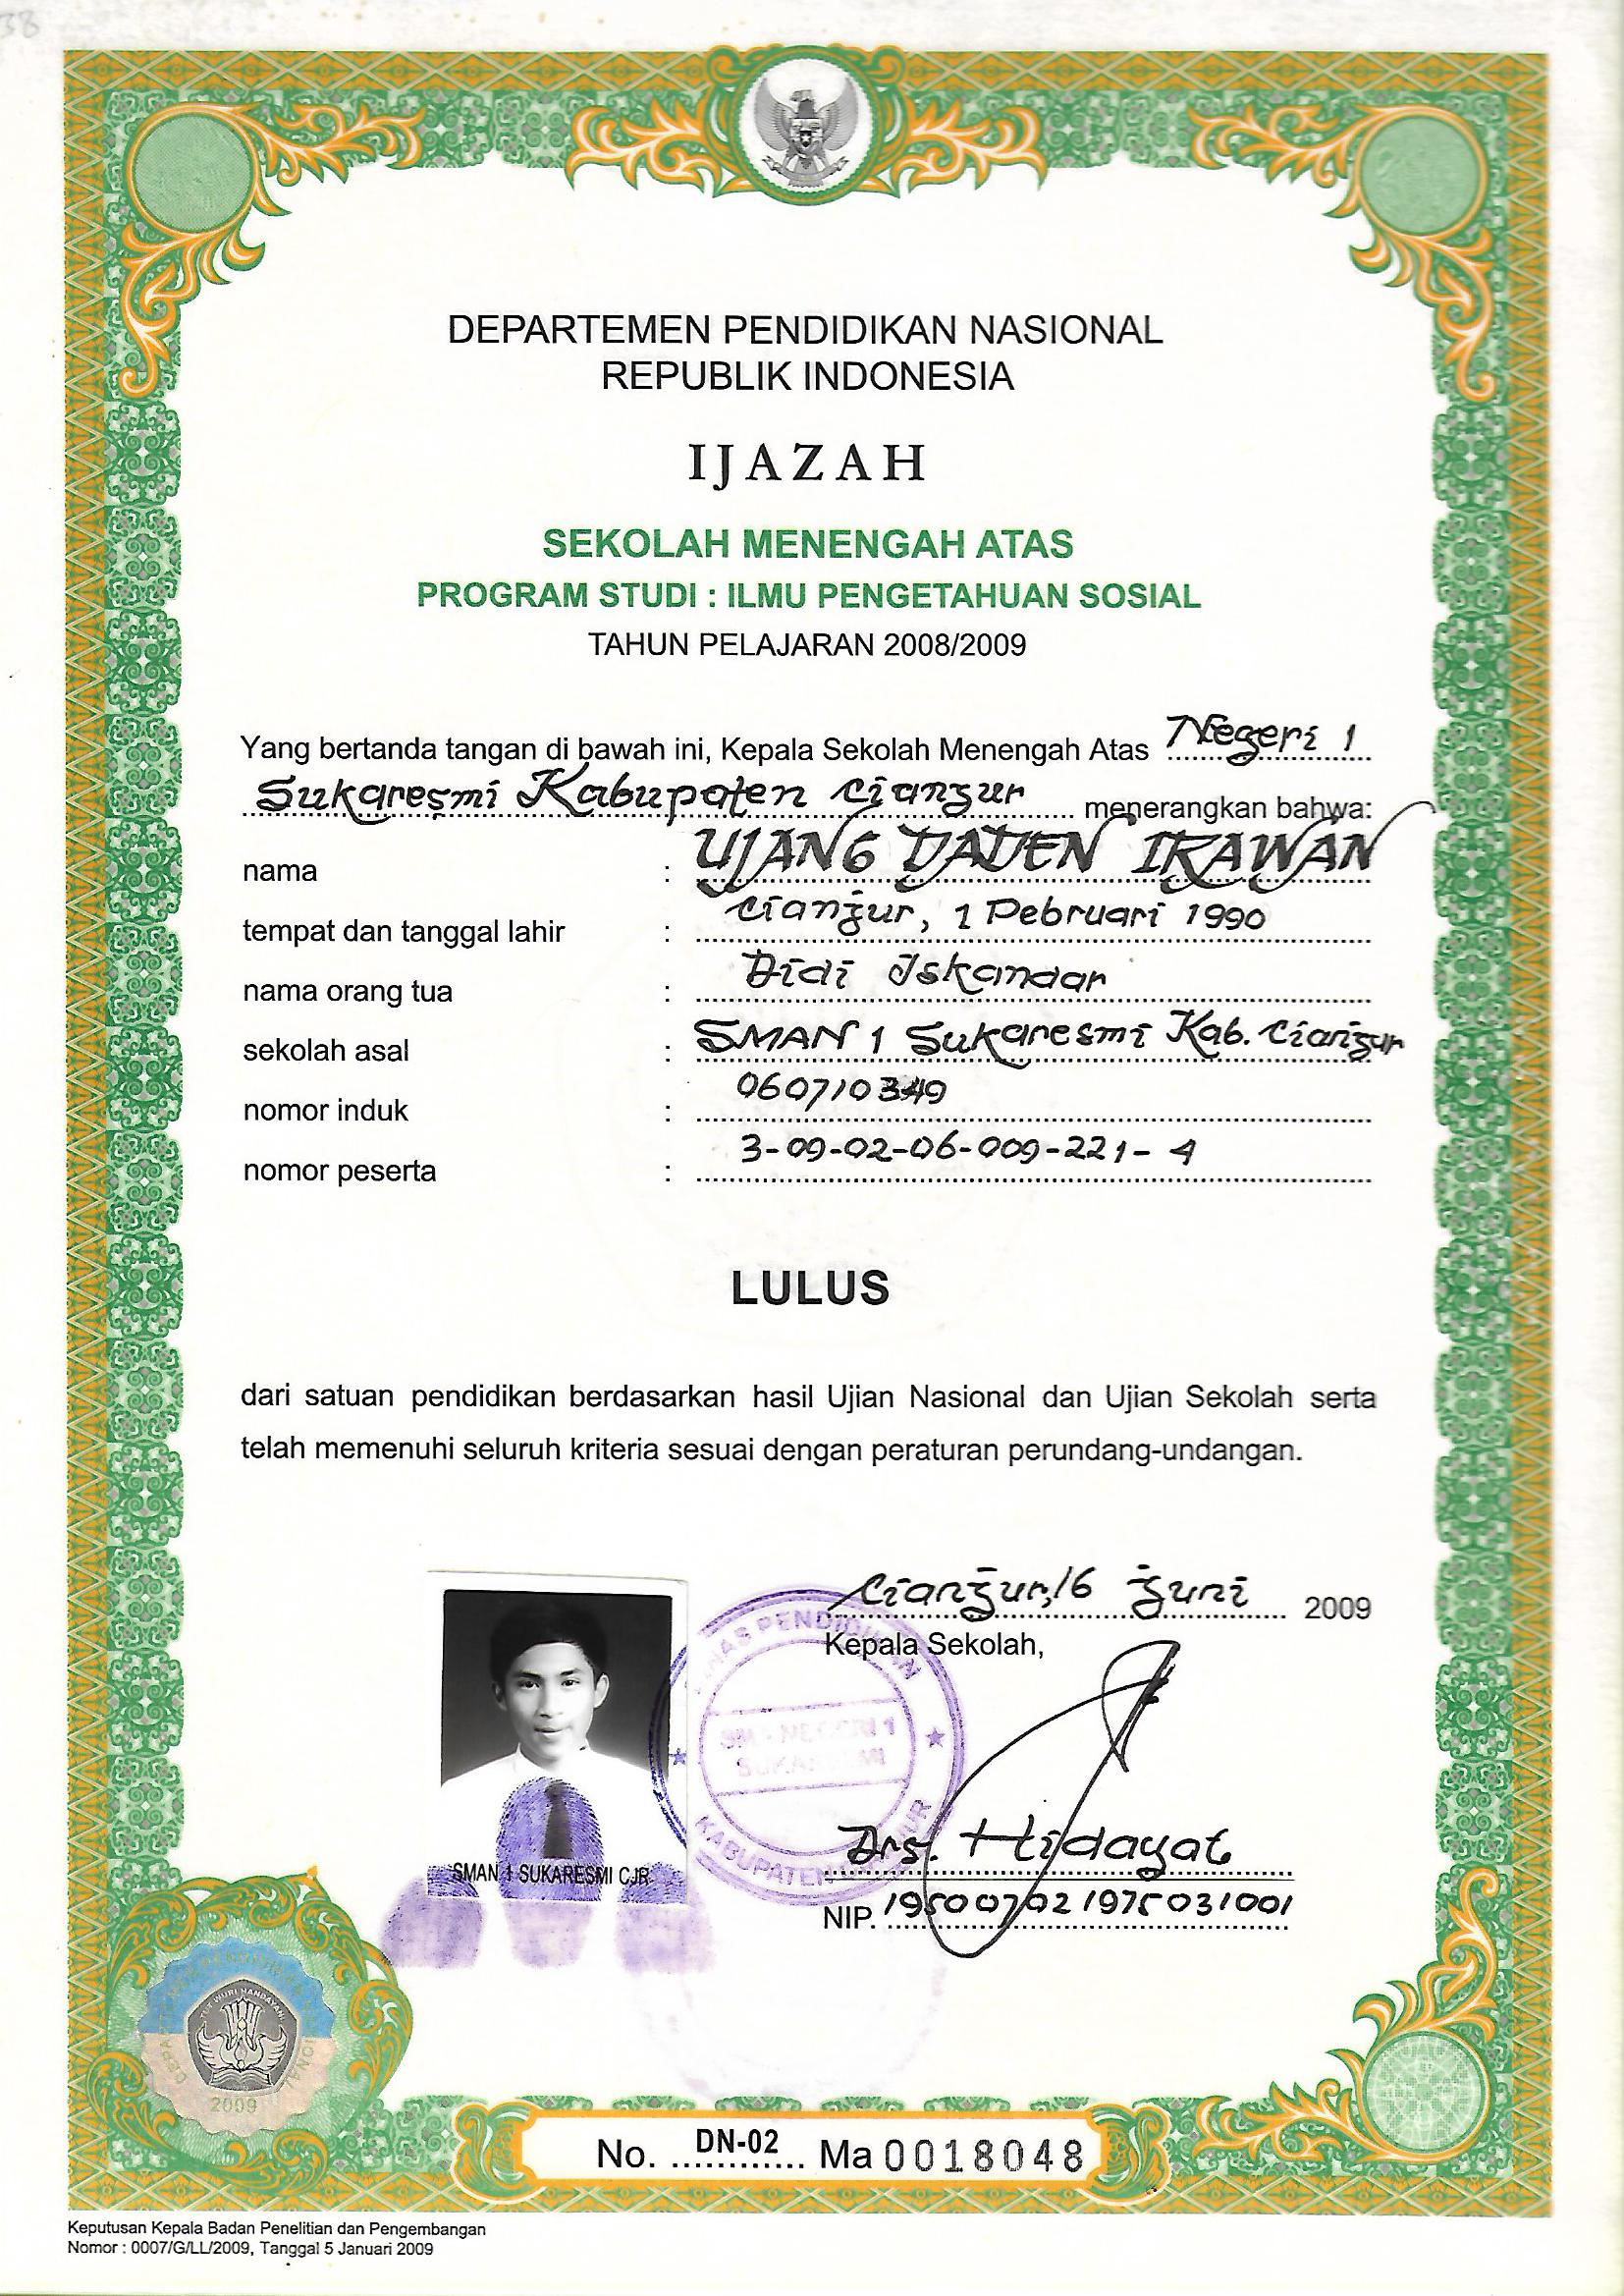 38
DEPARTEMEN PENDIDIKAN NASIONAL
REPUBLIK INDONESIA
IJAZAH
SEKOLAH MENENGAH ATAS
PROGRAM STUDI : ILMU PENGETAHUAN SOSIAL
TAHUN PELAJARAN 2008/2009
Yang bertanda tangan di bawah ini, Kepala Sekolah Menengah Atas Negeri 1
Sukaresmi Kabupaten Cianjur menerangkan bahwa:
nama : UJANG DADEN IRAWAN
tempat dan tanggal lahir : Cianjur, 1 Pebruari 1990
nama orang tua : Didi Iskandar
sekolah asal : SMAN 1 Sukaresmi Kab. Cianjur
nomor induk : 060710349
nomor peserta : 3-09-02-06-009-221-4
LULUS
dari satuan pendidikan berdasarkan hasil Ujian Nasional dan Ujian Sekolah serta
telah memenuhi seluruh kriteria sesuai dengan peraturan perundang-undangan.
Cianjur, 16 Juni 2009
Kepala Sekolah,
PENDIDIKAN
NEGERI 1
SUKARESMI
KABUPATEN
SMAN 1 SUKARESMI CJR
Drs. Hidayat
NIP. 195007021975031001
TUT WURI HANDAYANI
2009
No. DN-02 Ma 0018048
Keputusan Kepala Badan Penelitian dan Pengembangan
Nomor : 0007/G/LL/2009, Tanggal 5 Januari 2009